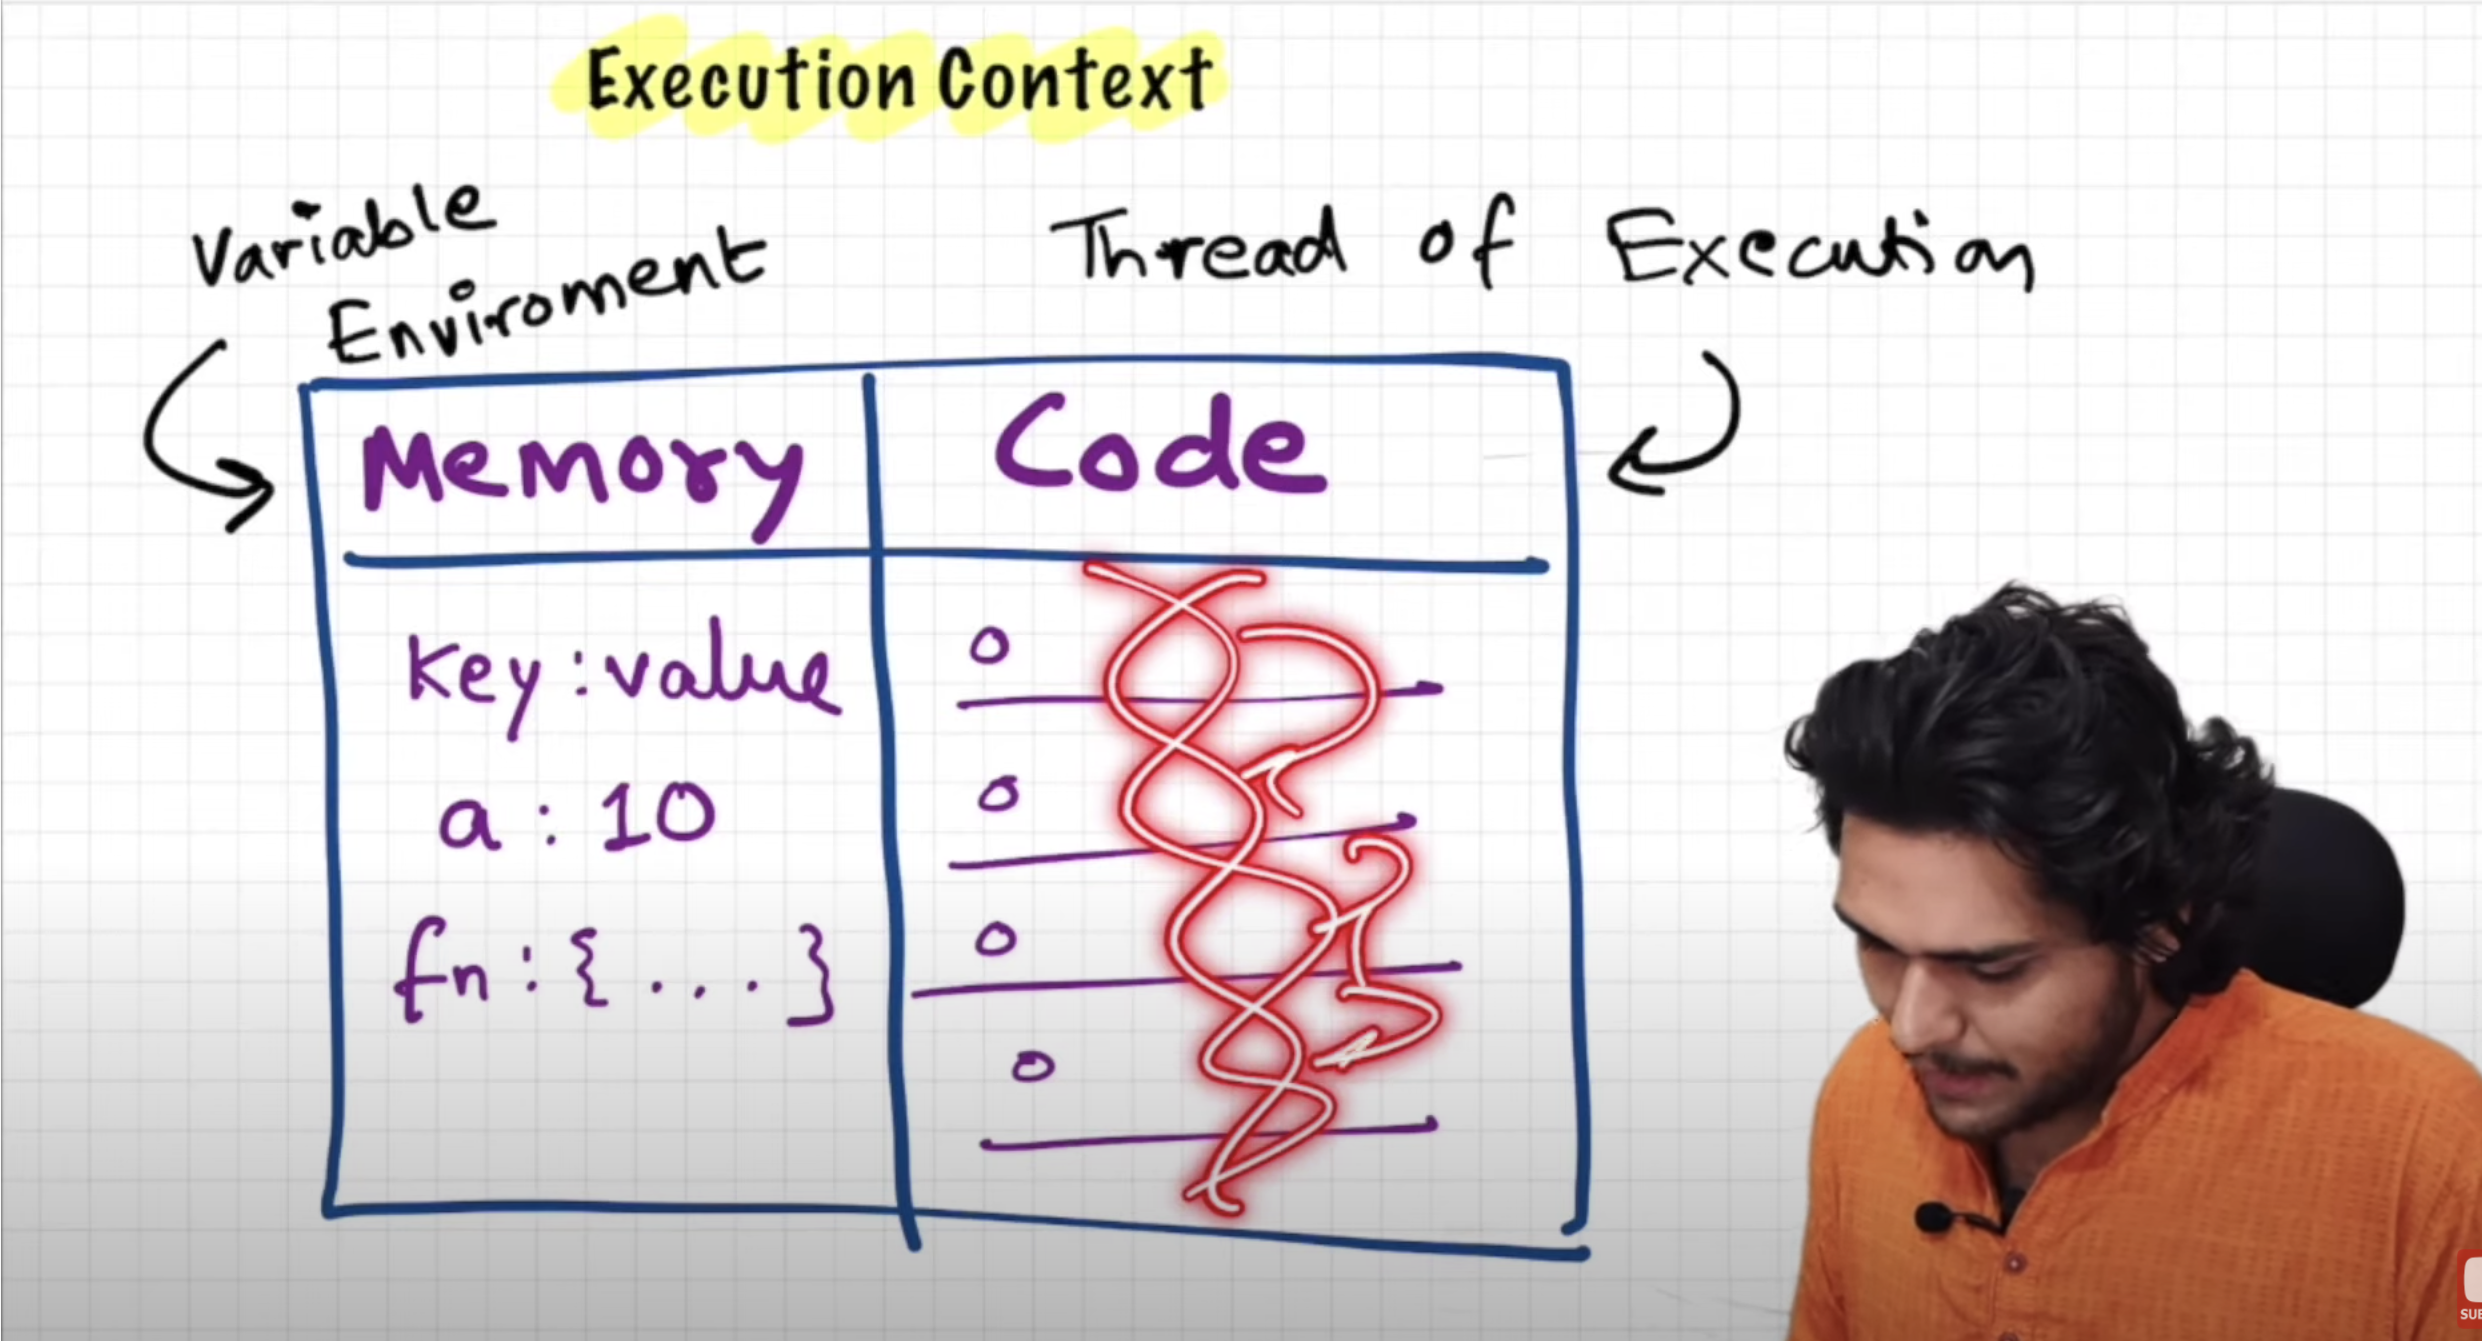 Execution Context
Variable
Enviroment
Thread of Execution
Memory
Code
key : value
a : 10
fn : { . . . }
o
o
o
o
SUB